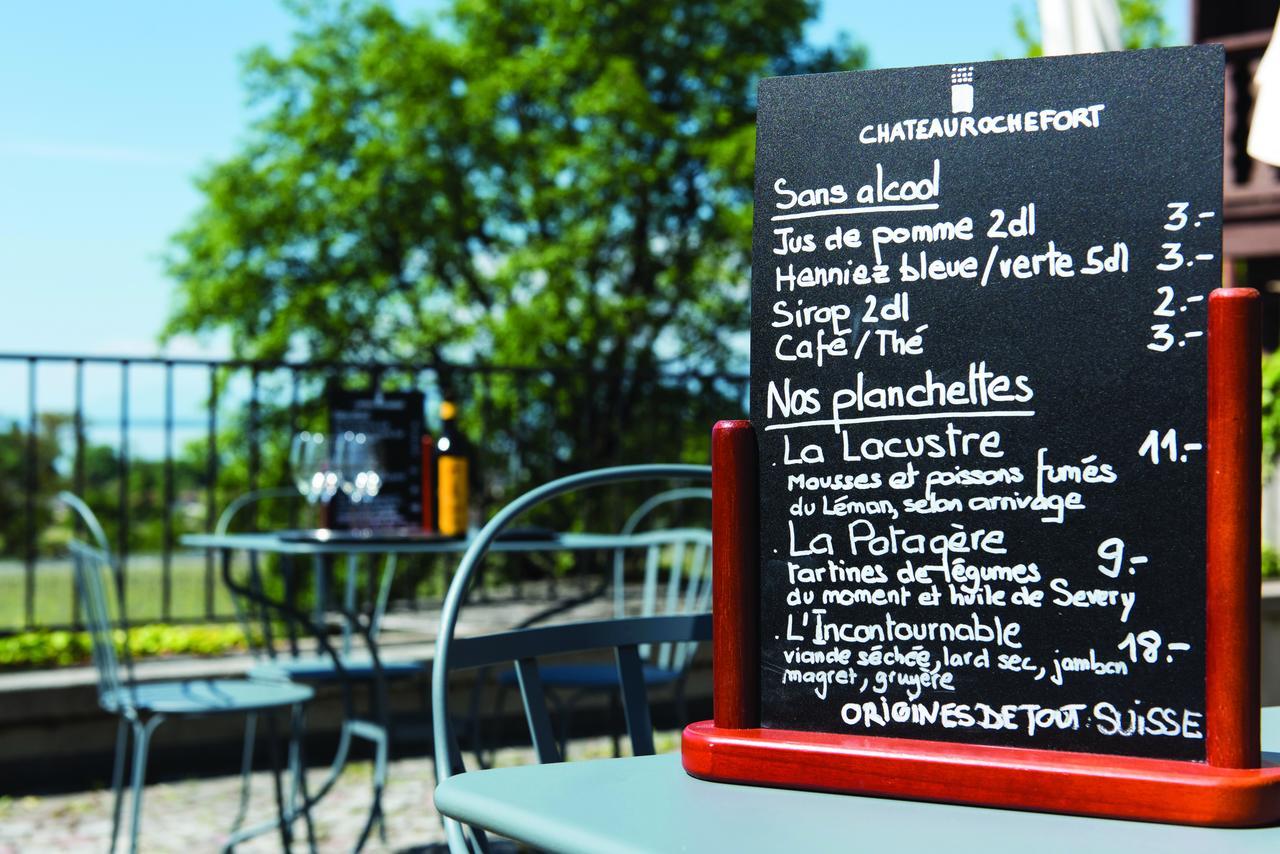 CHATEAUROCHEFORT
Sans alcool
Jus de pomme 2dl 3.-
Henniez bleue/verte 5dl 3.-
Sirop 2dl 2.-
Café/Thé 3.-
Nos planchettes
. La Lacustre 11.-
Mousses et poissons fumés
du Léman, selon arrivage
. La Potagère 9.-
tartines de légumes
du moment et huile de Severy
. L'Incontournable 18.-
viande séchée, lard sec, jambon
magret, gruyère
ORIGINES DE TOUT: SUISSE